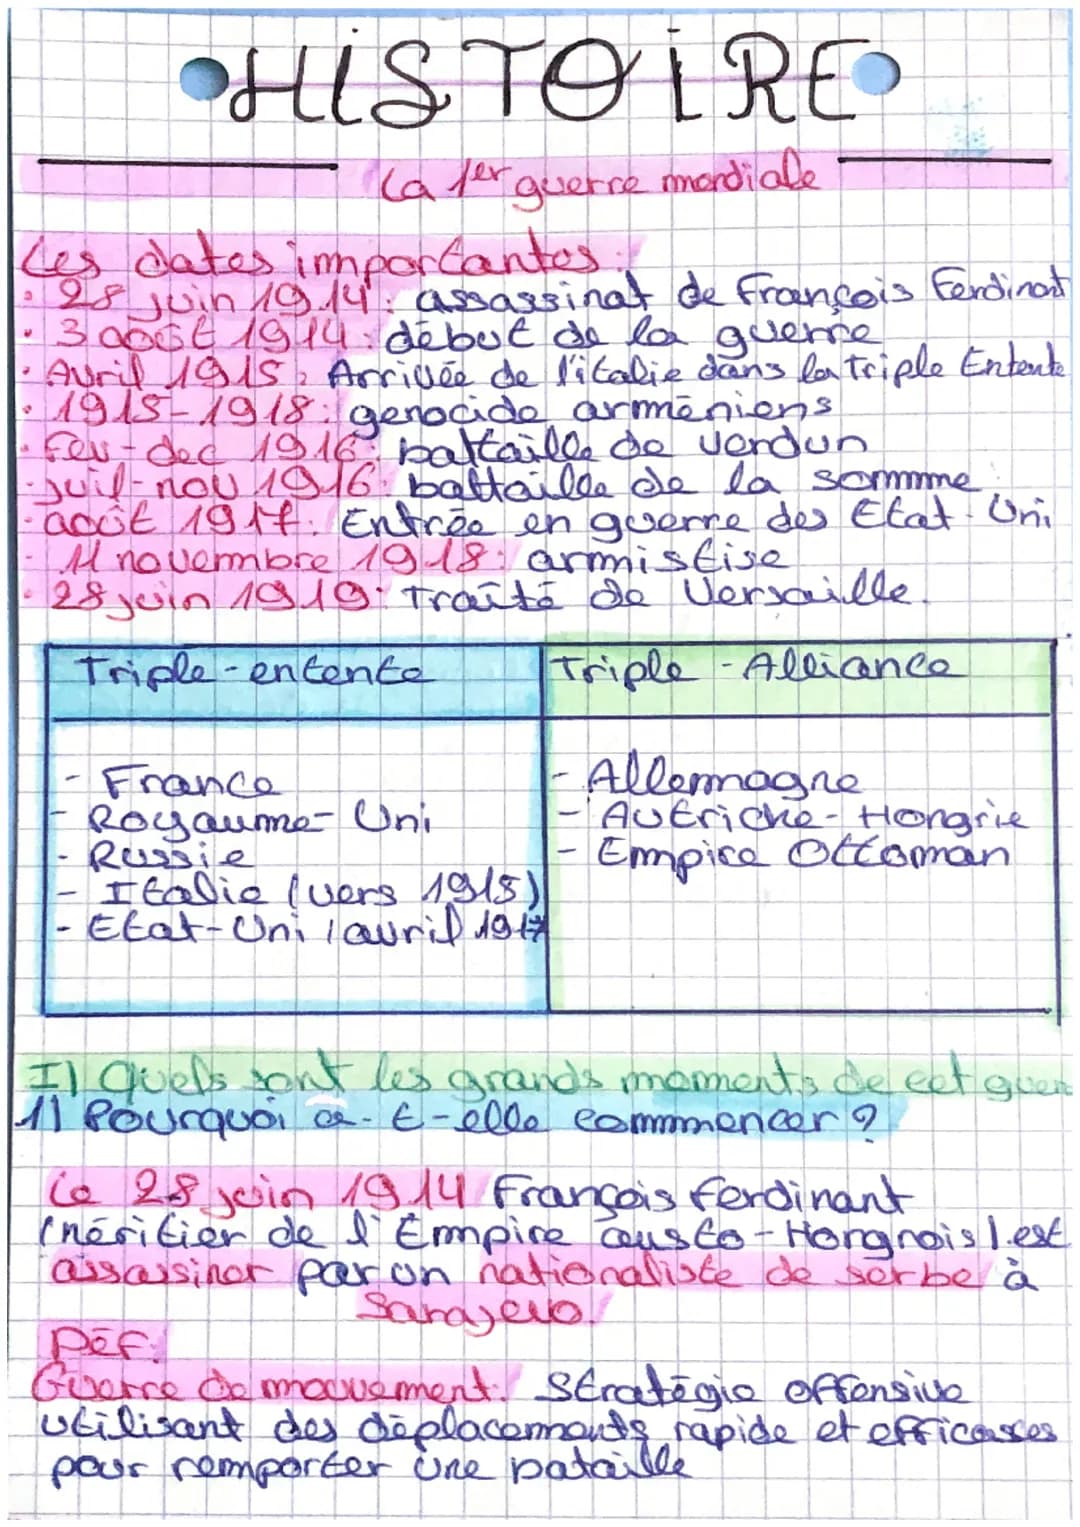 HISTOIRE
La 1er guerre mondiale
Les dates importantes:
· 28 juin 1914: assassinat de François Ferdinant
· 3 août 1914: début de la guerre
· Avril 1915: Arrivée de l'italie dans la Triple Entente
· 1915-1918: genocide arméniens
· Fev-dec 1916: battaille de verdun
· juil-nov 1916: battaille de la sommme
· août 1917: Entrée en guerre des Etat-Uni
· 11 novembre 1918: armistise
· 28 juin 1919: Traité de Versaille.
Triple-entente
Triple-Alliance
- France
- Royaume-Uni
- Russie
- Italie (vers 1915)
- Etat-Uni (avril 1917
- Allemagne
- Autriche-Hongrie
- Empire Ottoman
I) Quels sont les grands moments de cet guer
1) Pourquoi a-t-elle commmencer?
Le 28 juin 1914 François ferdinant
(héritier de l'Empire austo-Hongrois) est
assassiner par un nationaliste de serbe à
Sarajevo.
Déf:
Guerre de mouvement: Stratégie offensive
utilisant des déplacements rapide et efficasses
pour remporter une bataille